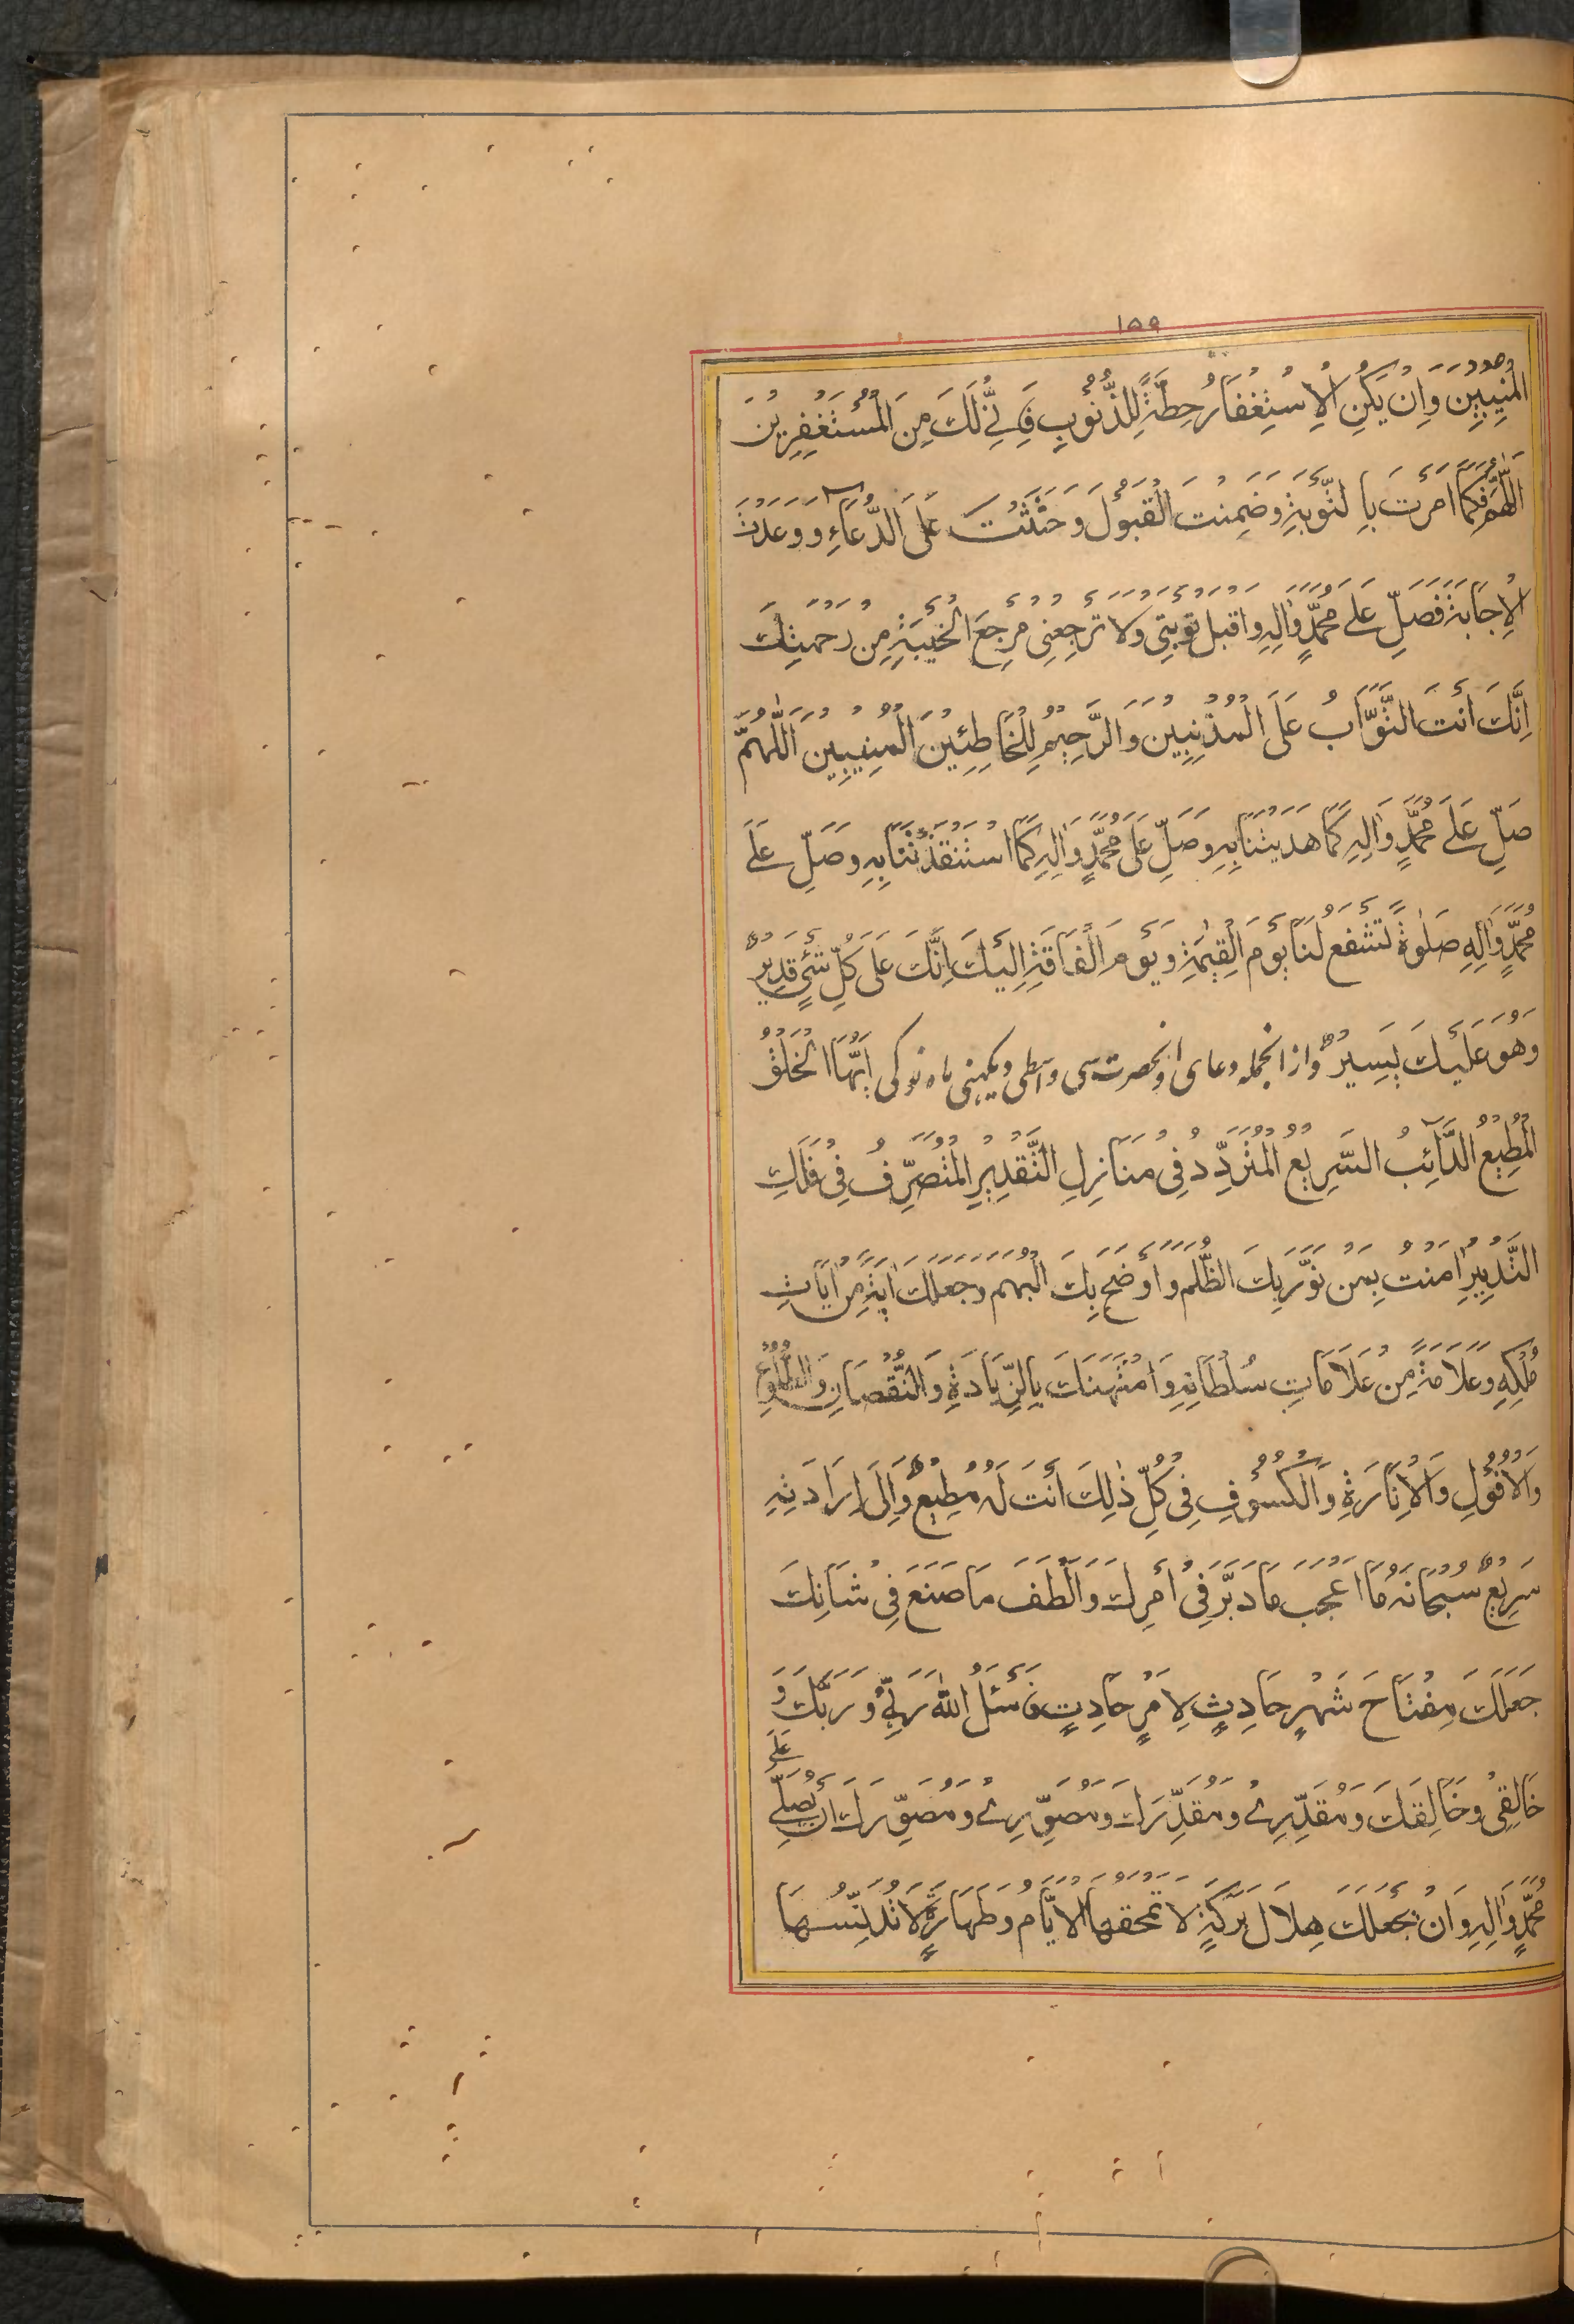 ١٥٩
الْمُنِيبِينَ وَاِنْ يَكُنِ الْاِسْتِغْفَارُ حِطَّةً لِلذُّنُوْبِ فَاِنِّيْ لَكَ مِنَ الْمُسْتَغْفِرِيْنَ
اَللّٰهُمَّ فَكَمَا اَمَرْتَ بِالتَّوْبَةِ وَضَمِنْتَ الْقَبُوْلَ وَحَثَثْتَ عَلَى الدُّعَآءِ وَوَعَدْتَ
الْاِجَابَةَ فَصَلِّ عَلٰى مُحَمَّدٍ وَاٰلِهِ وَاقْبَلْ تَوْبَتِيْ وَلَا تَرْجِعْنِيْ مَرْجِعَ الْخَيْبَةِ مِنْ رَحْمَتِكَ
اِنَّكَ اَنْتَ التَّوَّابُ عَلَى الْمُذْنِبِيْنَ وَالرَّحِيْمُ لِلْخَاطِئِيْنَ الْمُنِيْبِيْنَ اَللّٰهُمَّ
صَلِّ عَلٰى مُحَمَّدٍ وَاٰلِهِ كَمَا هَدَيْتَنَا بِهِ وَصَلِّ عَلٰى مُحَمَّدٍ وَاٰلِهِ كَمَا اسْتَنْقَذْتَنَا بِهِ وَصَلِّ عَلٰى
مُحَمَّدٍ وَاٰلِهِ صَلٰوةً تَشْفَعُ لَنَا يَوْمَ الْقِيٰمَةِ وَيَوْمَ الْفَاقَةِ اِلَيْكَ اِنَّكَ عَلٰى كُلِّ شَيْءٍ قَدِيْرٌ
وَهُوَ عَلَيْكَ يَسِيْرٌ وازانجمله دعاى اونحضرت سى واسطى ديكهنى ماه نو كى اَيُّهَا الْخَلْقُ
الْمُطِيْعُ الدَّآئِبُ السَّرِيْعُ الْمُتَرَدِّدُ فِيْ مَنَازِلِ التَّقْدِيْرِ الْمُتَصَرِّفُ فِيْ فَلَكِ
التَّدْبِيْرِ اٰمَنْتُ بِمَنْ نَوَّرَ بِكَ الظُّلَمَ وَاَوْضَحَ بِكَ الْبُهَمَ وَجَعَلَكَ اٰيَةً مِنْ اٰيَاتِ
مُلْكِهِ وَعَلَامَةً مِنْ عَلَامَاتِ سُلْطَانِهِ وَامْتَهَنَكَ بِالزِّيَادَةِ وَالنُّقْصَانِ وَالطُّلُوْعِ
وَالْاُفُوْلِ وَالْاِنَارَةِ وَالْكُسُوْفِ فِيْ كُلِّ ذٰلِكَ اَنْتَ لَهُ مُطِيْعٌ وَاِلٰى اِرَادَتِهِ
سَرِيْعٌ سُبْحَانَهُ مَا اَعْجَبَ مَا دَبَّرَ فِيْ اَمْرِكَ وَاَلْطَفَ مَا صَنَعَ فِيْ شَاْنِكَ
جَعَلَكَ مِفْتَاحَ شَهْرٍ حَادِثٍ لِاَمْرٍ حَادِثٍ فَاَسْئَلُ اللّٰهَ رَبِّيْ وَرَبَّكَ وَ
خَالِقِيْ وَخَالِقَكَ وَمُقَدِّرِيْ وَمُقَدِّرَكَ وَمُصَوِّرِيْ وَمُصَوِّرَكَ اَنْ يُصَلِّيَ عَلٰى
مُحَمَّدٍ وَاٰلِهِ وَاَنْ يَجْعَلَكَ هِلَالَ بَرَكَةٍ لَا تَمْحَقُهَا الْاَيَّامُ وَطَهَارَةٍ لَا تُدَنِّسُهَا